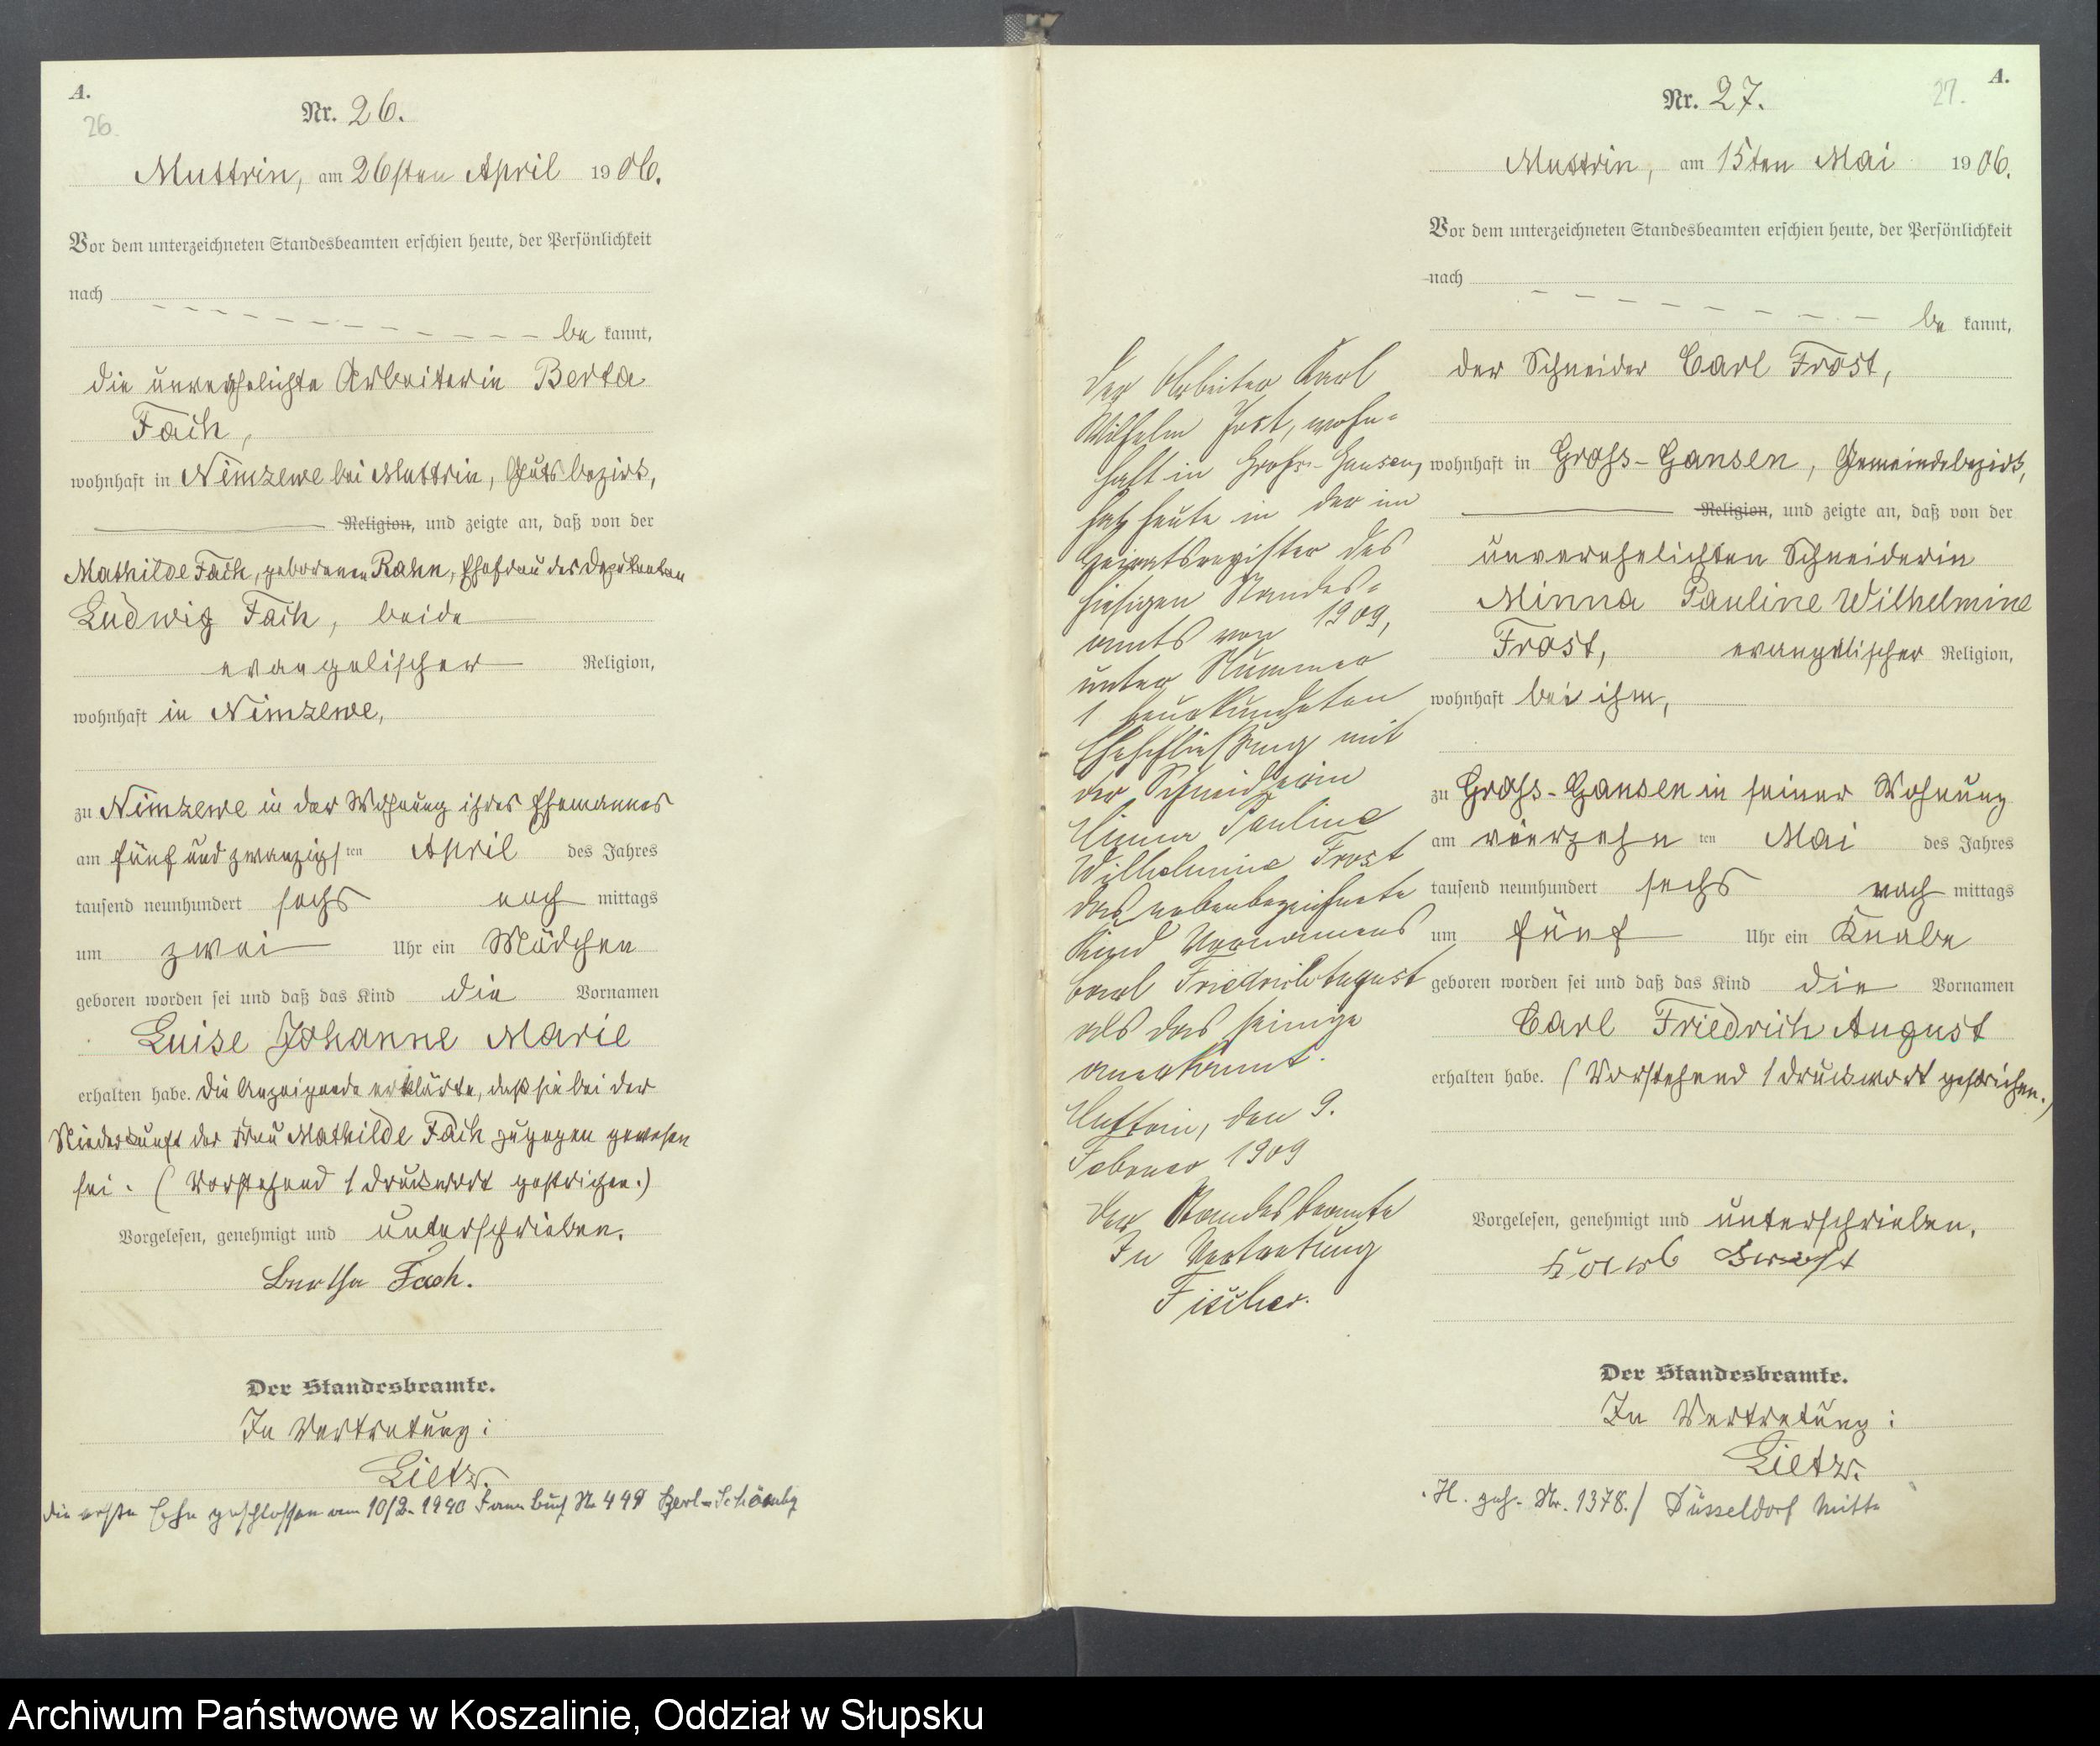 A.
26.
Nr. 26.
Muttrin, am 26sten April 1906.
Vor dem unterzeichneten Standesbeamten erschien heute, der Persönlichkeit
nach
be kannt,
die unverehelichte Arbeiterin Berta
Fach,
wohnhaft in Nimzewe bei Muttrin, Gutsbezirk,
Religion, und zeigte an, daß von der
Mathilde Fach, geborenen Rahn, Ehefrau des Deputanten
Ludwig Fach, beide
evangelischer Religion,
wohnhaft in Nimzewe,
zu Nimzewe in der Wohnung ihres Ehemannes
am fünf und zwanzigsten April des Jahres
tausend neunhundert sechs nach mittags
um zwei Uhr ein Mädchen
geboren worden sei und daß das Kind die Vornamen
Luise Johanne Marie
erhalten habe. Die Anzeigende erklärte, daß sie bei der
Niederkunft der Frau Mathilde Fach zugegen gewesen
sei. (Vorstehend 1 Druckwort gestrichen.)
Vorgelesen, genehmigt und unterschrieben.
Bertha Fach.
Der Standesbeamte.
In Vertretung:
Lietz.
die erste Ehe geschlossen am 10/2. 1940 Fam Buch Nr 449 Berlin Schönebg
Der Arbeiter Karl
Wilhelm Jost, wohn=
haft in Gross-Gansen,
hat heute in der im
Heiratsregister des
hiesigen Standes=
amts von 1909,
unter Nummer
1 beurkundeten
Eheschließung mit
der Schneiderin
Minna Pauline
Wilhelmine Frost
das nebenbezeichnete
Kind Vornamens
Carl Friedrich August
als das seinige
anerkannt.
Muttrin, den 9.
Februar 1909
Der Standesbeamte
In Vertretung
Fischer.
A.
27.
Nr. 27.
Muttrin, am 15ten Mai 1906.
Vor dem unterzeichneten Standesbeamten erschien heute, der Persönlichkeit
nach
be kannt,
der Schneider Carl Frost,
wohnhaft in Gross-Gansen, Gemeindebezirk,
Religion, und zeigte an, daß von der
unverehelichten Schneiderin
Minna Pauline Wilhelmine
Frost, evangelischer Religion,
wohnhaft bei ihm,
zu Gross-Gansen in seiner Wohnung
am vierzehn ten Mai des Jahres
tausend neunhundert sechs nach mittags
um fünf Uhr ein Knabe
geboren worden sei und daß das Kind die Vornamen
Carl Friedrich August
erhalten habe. (Vorstehend 1 Druckwort gestrichen.)
Vorgelesen, genehmigt und unterschrieben.
Der Standesbeamte.
In Vertretung:
Lietz.
H. geh. Nr. 1378./ Düsseldorf Mitte
Archiwum Państwowe w Koszalinie, Oddział w Słupsku